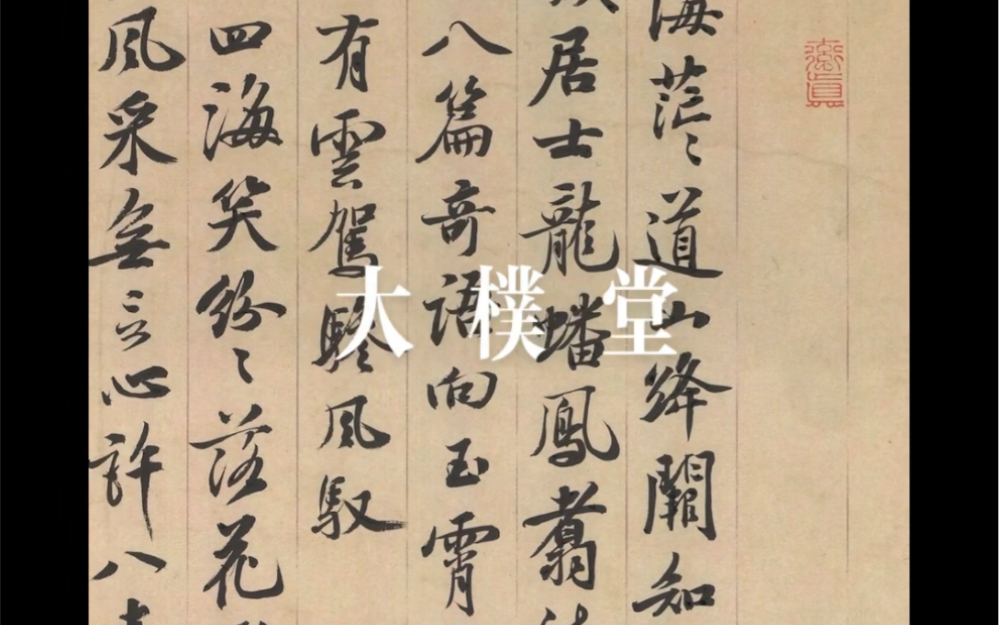 海茫〻道山絳闕知
居士龍蟠鳳翥
八篇奇語向玉霄
有雲駕驂風馭
四海笑紛〻落花
風采無言心許八
大樸堂